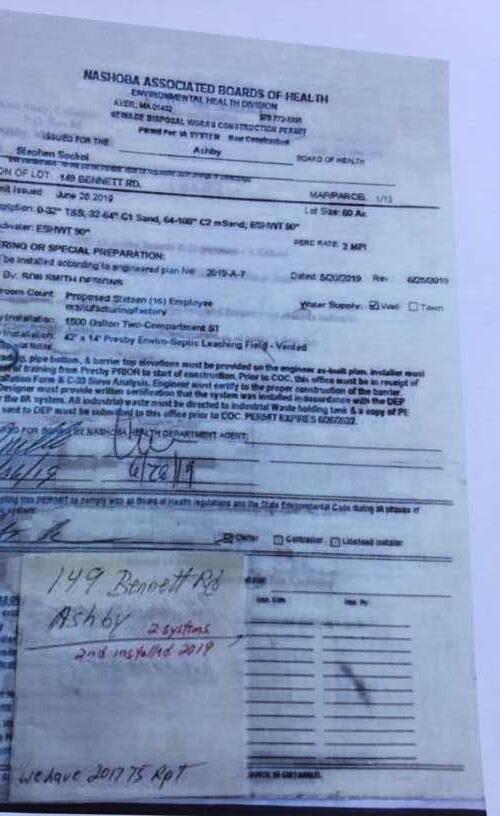 NASHOBA ASSOCIATED BOARDS OF HEALTH
ENVIRONMENTAL HEALTH DIVISION
AYER, MA 01432 978 772-3335
SEWAGE DISPOSAL WORKS CONSTRUCTION PERMIT
Permit For: IA SYSTEM New Construction
ISSUED FOR THE Ashby BOARD OF HEALTH
Stephen Sockol
ON OF LOT: 149 BENNETT RD. MAP/PARCEL 1/13
mit Issued June 28 2019 Lot Size: 60 Ac.
cription: 0-32" TSS, 32-64" C1 Sand, 64-108" C2 mSand, ESHWT 90"
dwater: ESHWT 90" PERC RATE: 2 MPI
ERING OR SPECIAL PREPARATION:
be installed according to engineered plan No: 2019-A-7 Dated: 5/20/2019 Rev: 6/25/2019
BY: ROB SMITH DESIGNS
room Count Proposed Sixteen (16) Employee Water Supply: ☑ Well ☐ Town
manufacturing factory
y Installation: 1500 Gallon Two-Compartment ST
Installation: 42' x 14' Presby Enviro-Septic Leaching Field - Vented
pipe bottom, & barrier top elevations must be provided on the engineer as-built plan. Installer must
of training from Presby PRIOR to start of construction. Prior to COC, this office must be in receipt of
allation Form & C-33 Sieve Analysis. Engineer must certify to the proper construction of the barrier.
Designer must provide written certification that the system was installed in accordance with the DEP
r the IA system. All industrial waste must be directed to Industrial Waste holding tank & a copy of PE
sent to DEP must be submitted to this office prior to COC. PERMIT EXPIRES
BY NASHOBA HEALTH DEPARTMENT AGENT:
6/28/19
PERMIT to comply with all Board of Health regulations and the State Environmental Code during all phases of
system:
☑ Owner ☐ Contractor ☐ Licensed Installer
149 Bennett Rd
Ashby 2 systems
2nd installed 2019
we have 2017 T5 RpT